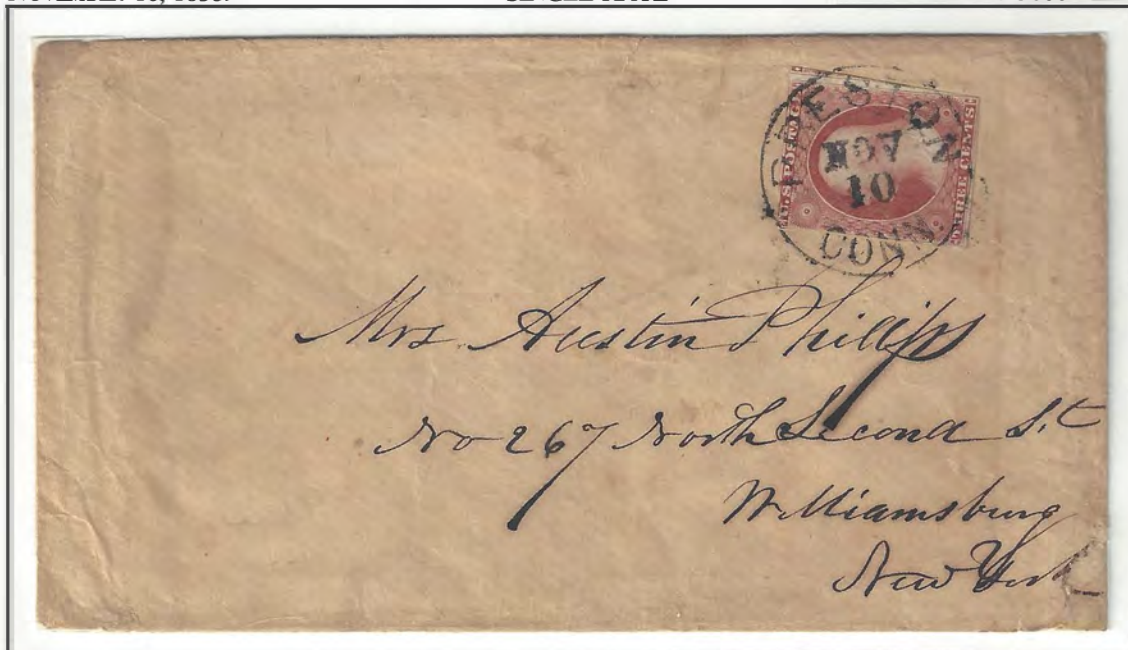 PRESTON
NOV
10
CONN.
U.S. POSTAGE
THREE CENTS.
Mrs Austin Phillips
No 267 North Second St
Williamsburg
New York